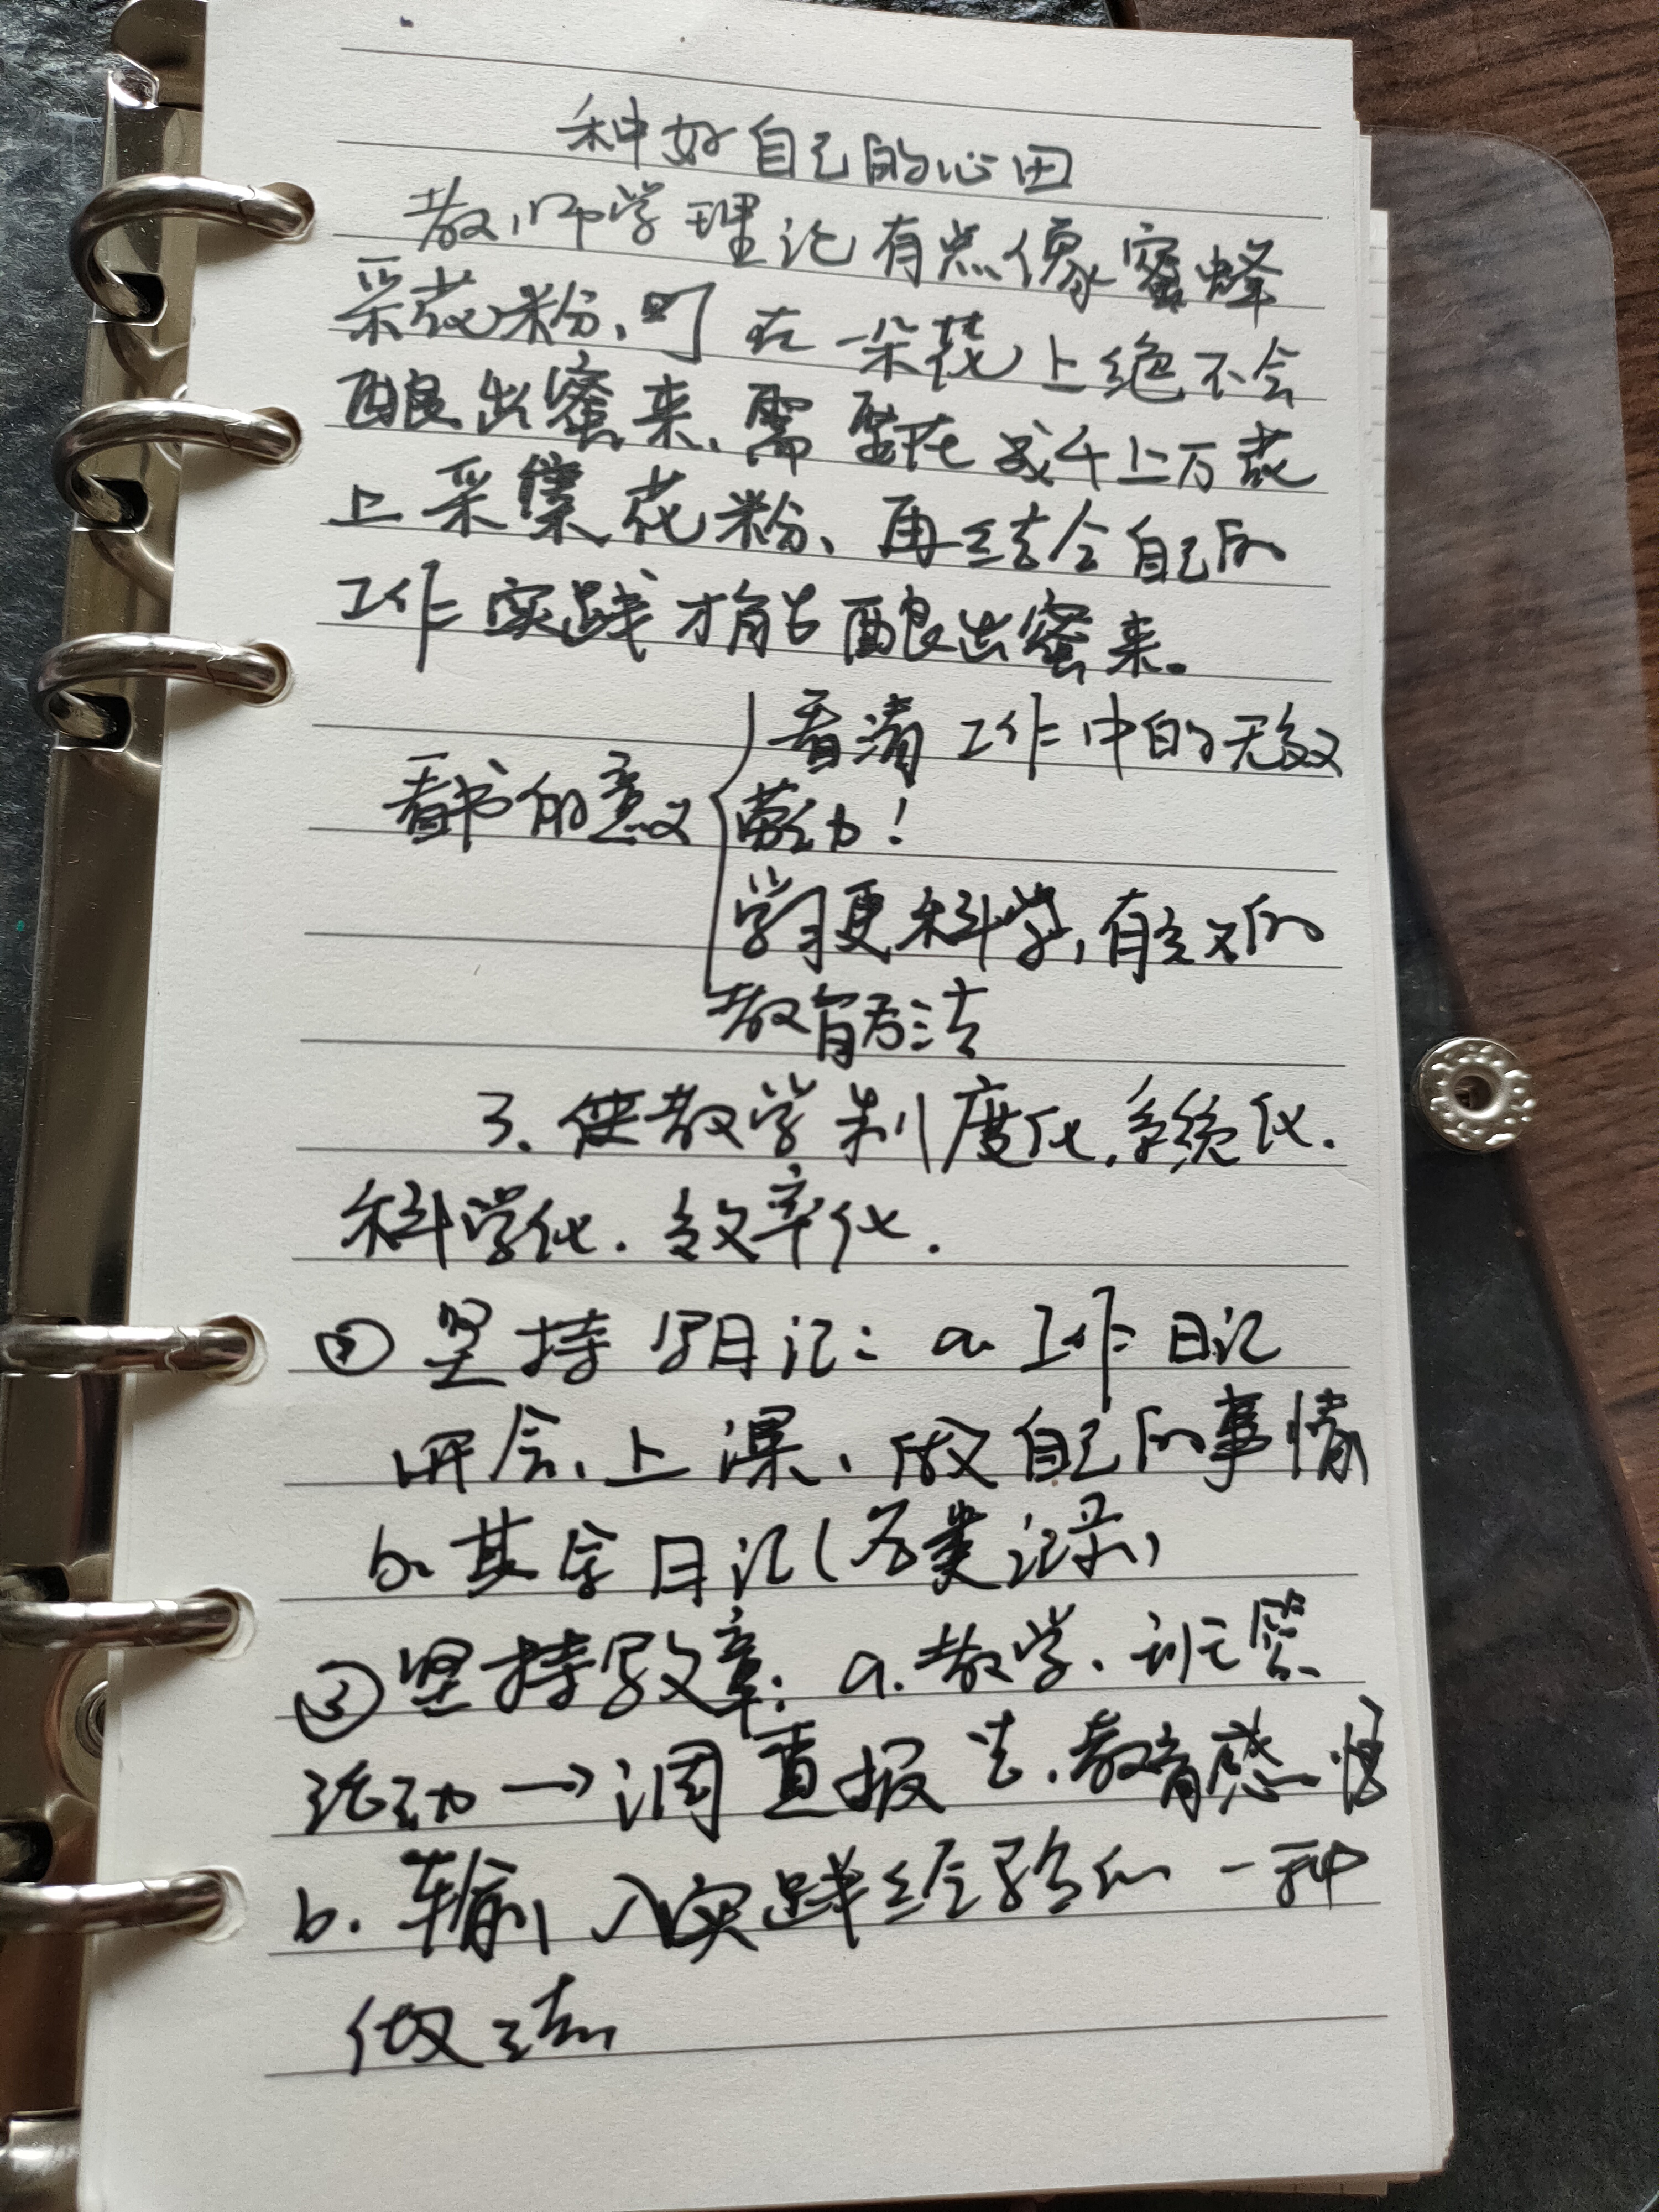 种好自己的心田
教师学理论有点像蜜蜂
采花粉、叮在一朵花上绝不会
酿出蜜来、需要在成千上万花
上采集花粉、再结合自己的
工作实践才能酿出蜜来。
看清工作中的无效
看书的意义
劳动！
学习更科学,有效的
教育方法
3. 使教学制度化.系统化.
科学化.效率化.
坚持写日记: a. 工作日记
开会、上课、做自己的事情
b. 其余日记(分类记录)
③坚持写文章: a. 教学、班管
活动→调查报告.教育感悟
b. 输入实践经验的一种
做法